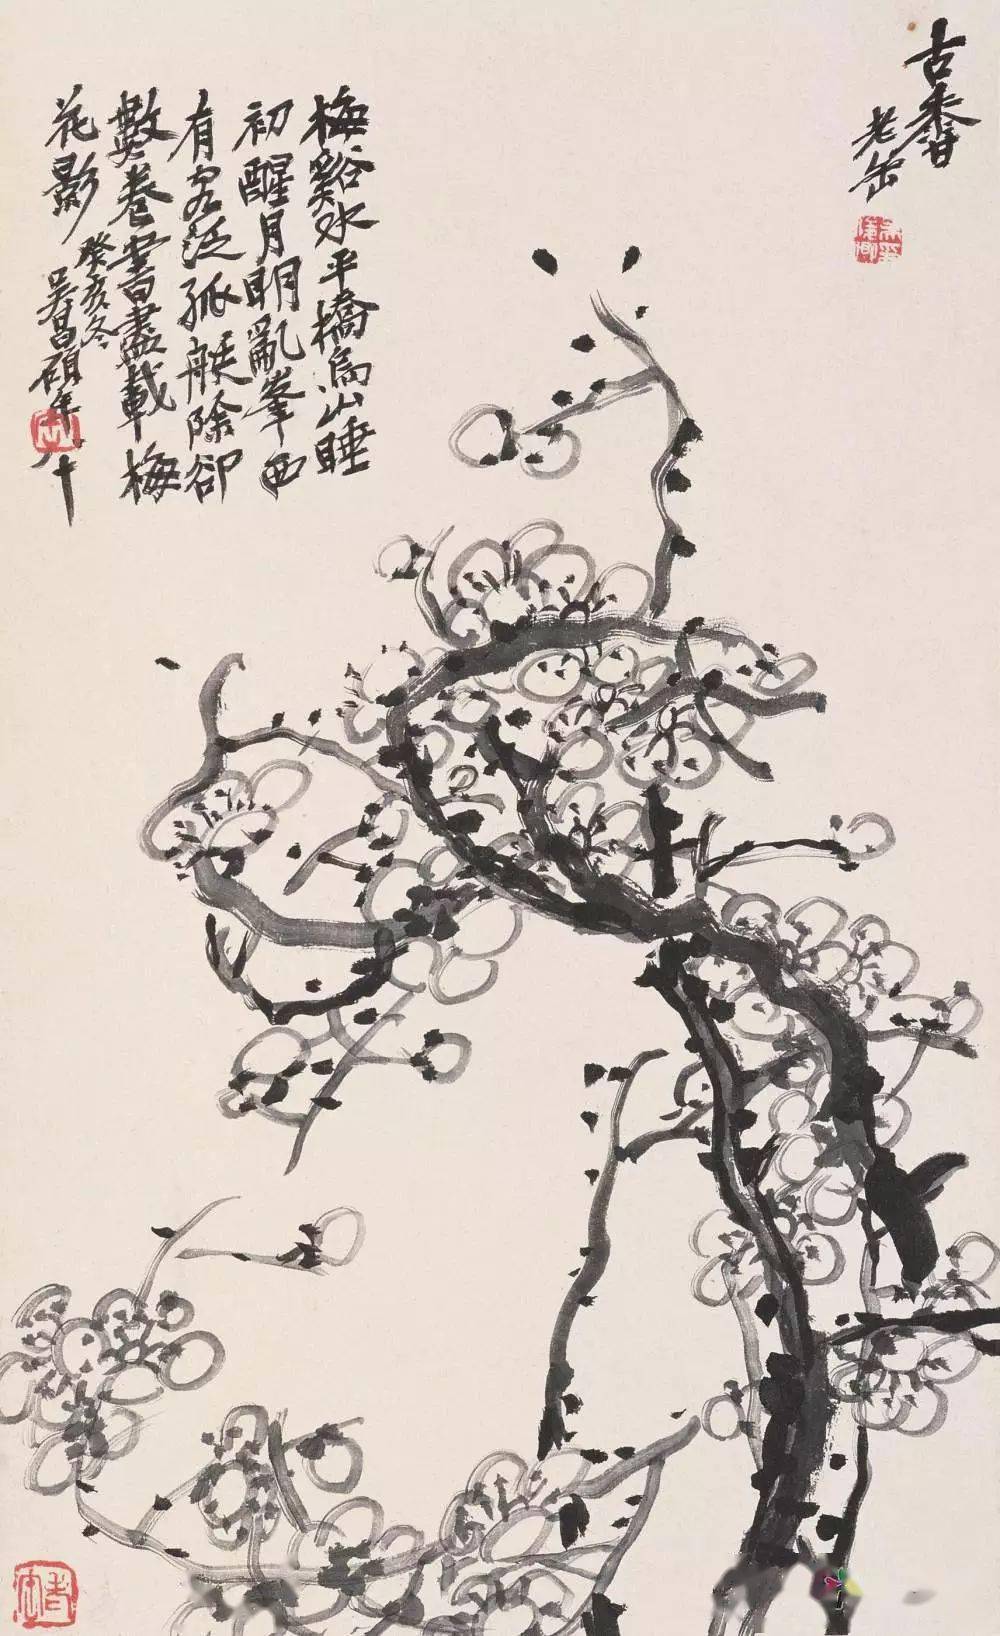 古香
老缶
梅谿水平橋烏山睡
初醒月明亂峯西
有客泛孤艇除卻
數卷書盡載梅
花影
癸亥冬
吳昌碩年八十